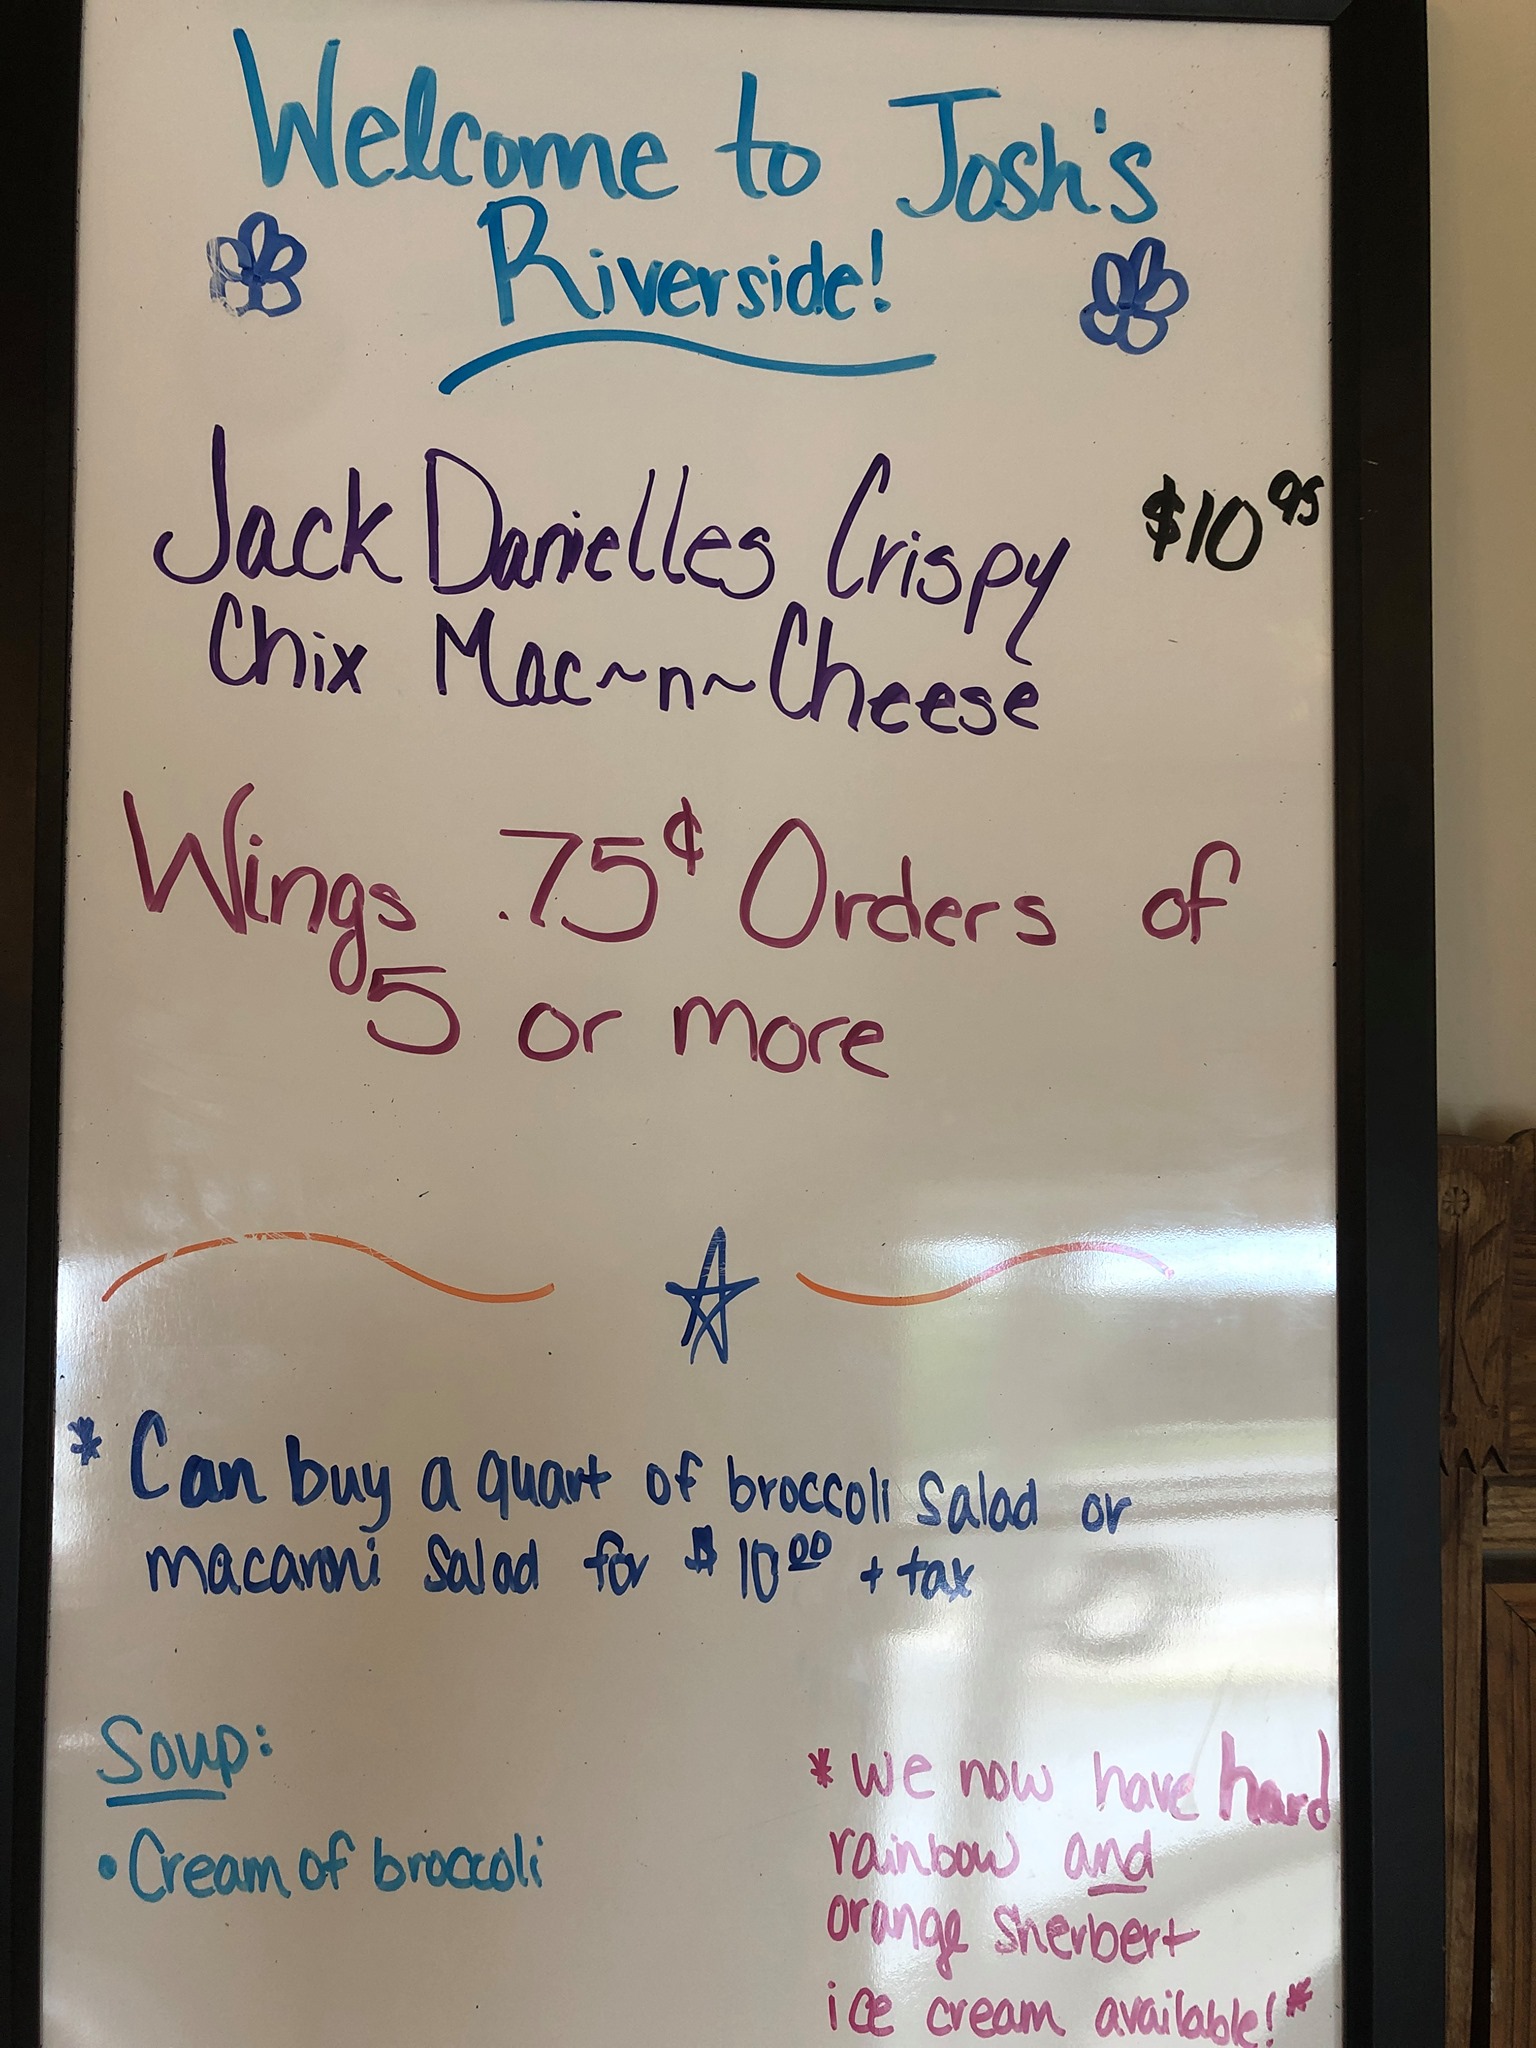 Welcome to Josh's
Riverside!
Jack Danielles Crispy $10 95
Chix Mac~n~Cheese
Wings .75¢ Orders of
5 or more
* Can buy a quart of broccoli salad or
macaroni salad for $10.00 + tax
Soup:
• Cream of broccoli
* we now have hard
rainbow and
orange sherbert
ice cream available! *